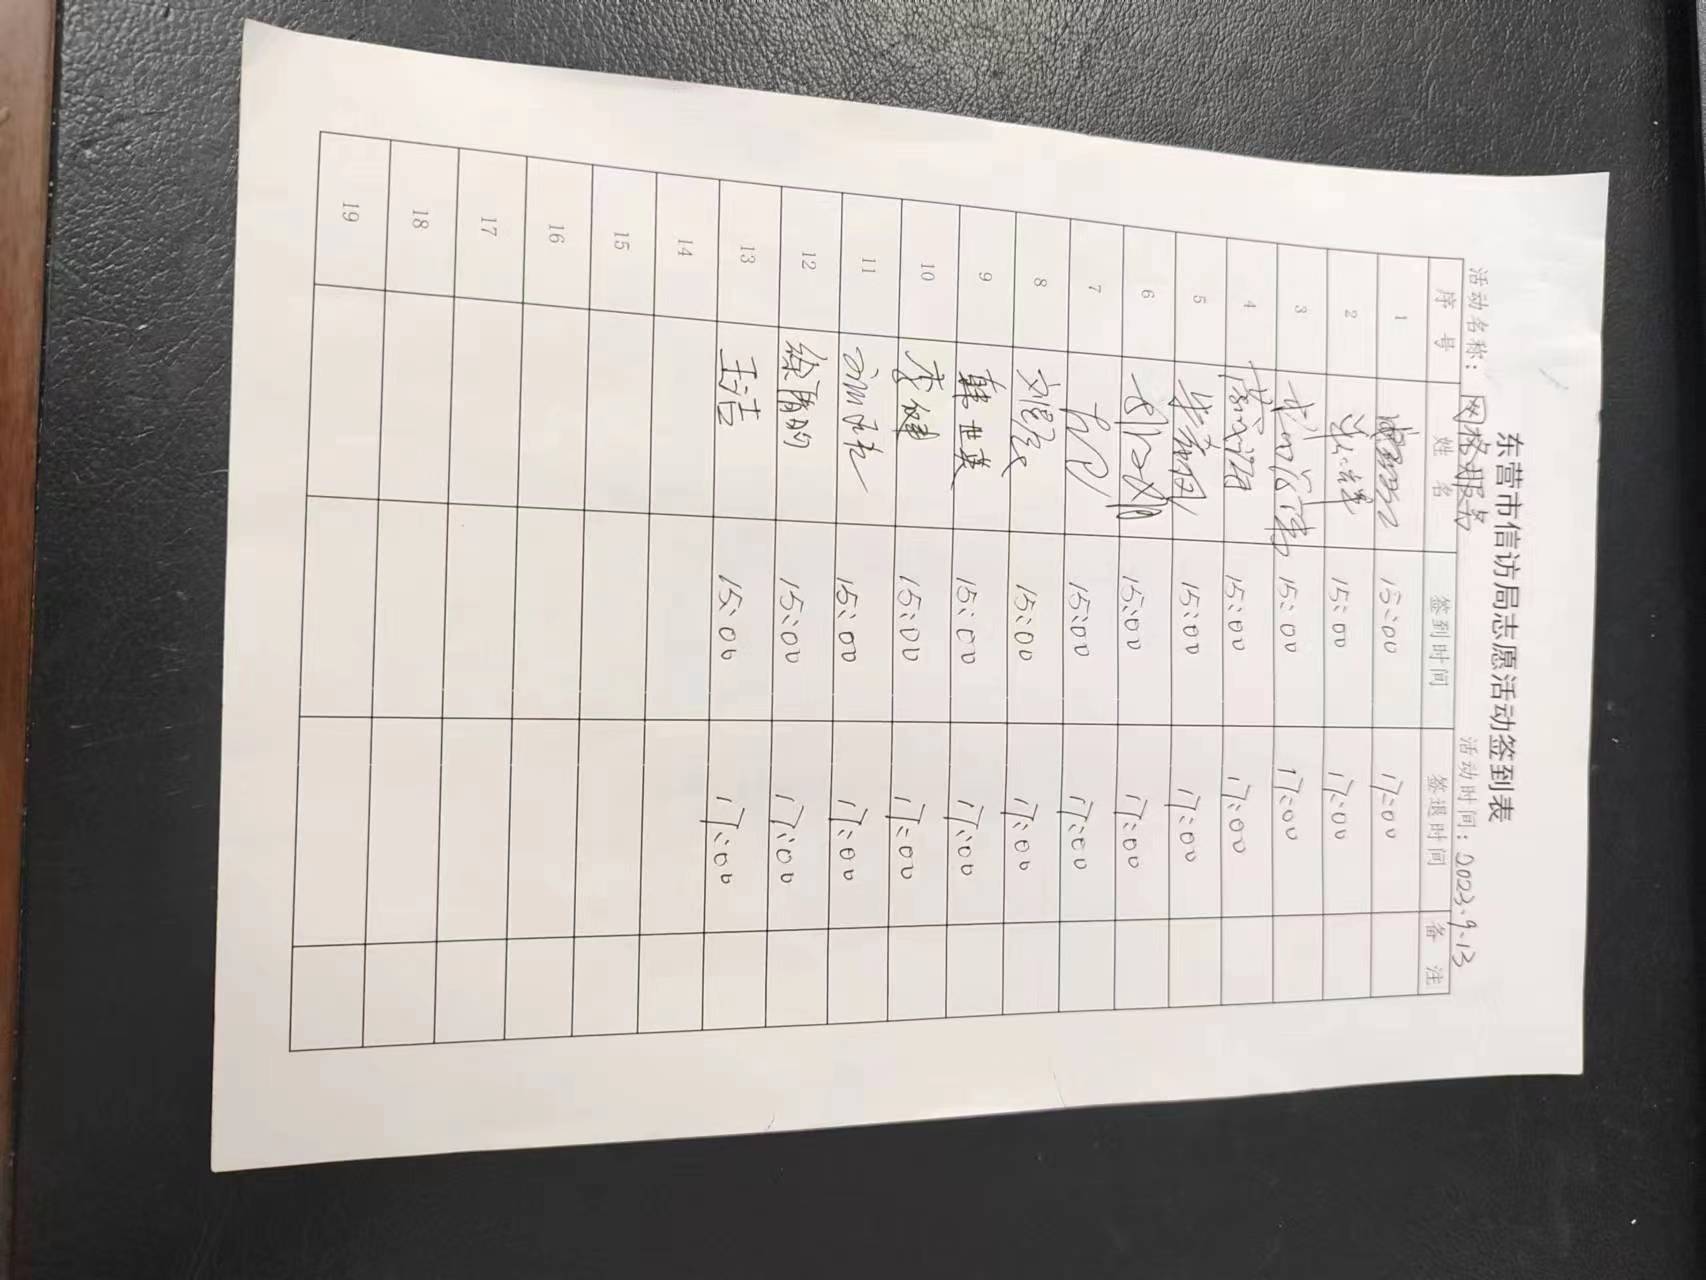 东营市信访局志愿活动签到表
活动名称：网格服务 活动时间：2023.9.13
序号 姓名 签到时间 签退时间 备注
1 15:00 17:00
2 15:00 17:00
3 15:00 17:00
4 15:00 17:00
5 15:00 17:00
6 15:00 17:00
7 15:00 17:00
8 15:00 17:00
9 韩世英 15:00 17:00
10 李健 15:00 17:00
11 15:00 17:00
12 15:00 17:00
13 王洁 15:00 17:00
14
15
16
17
18
19